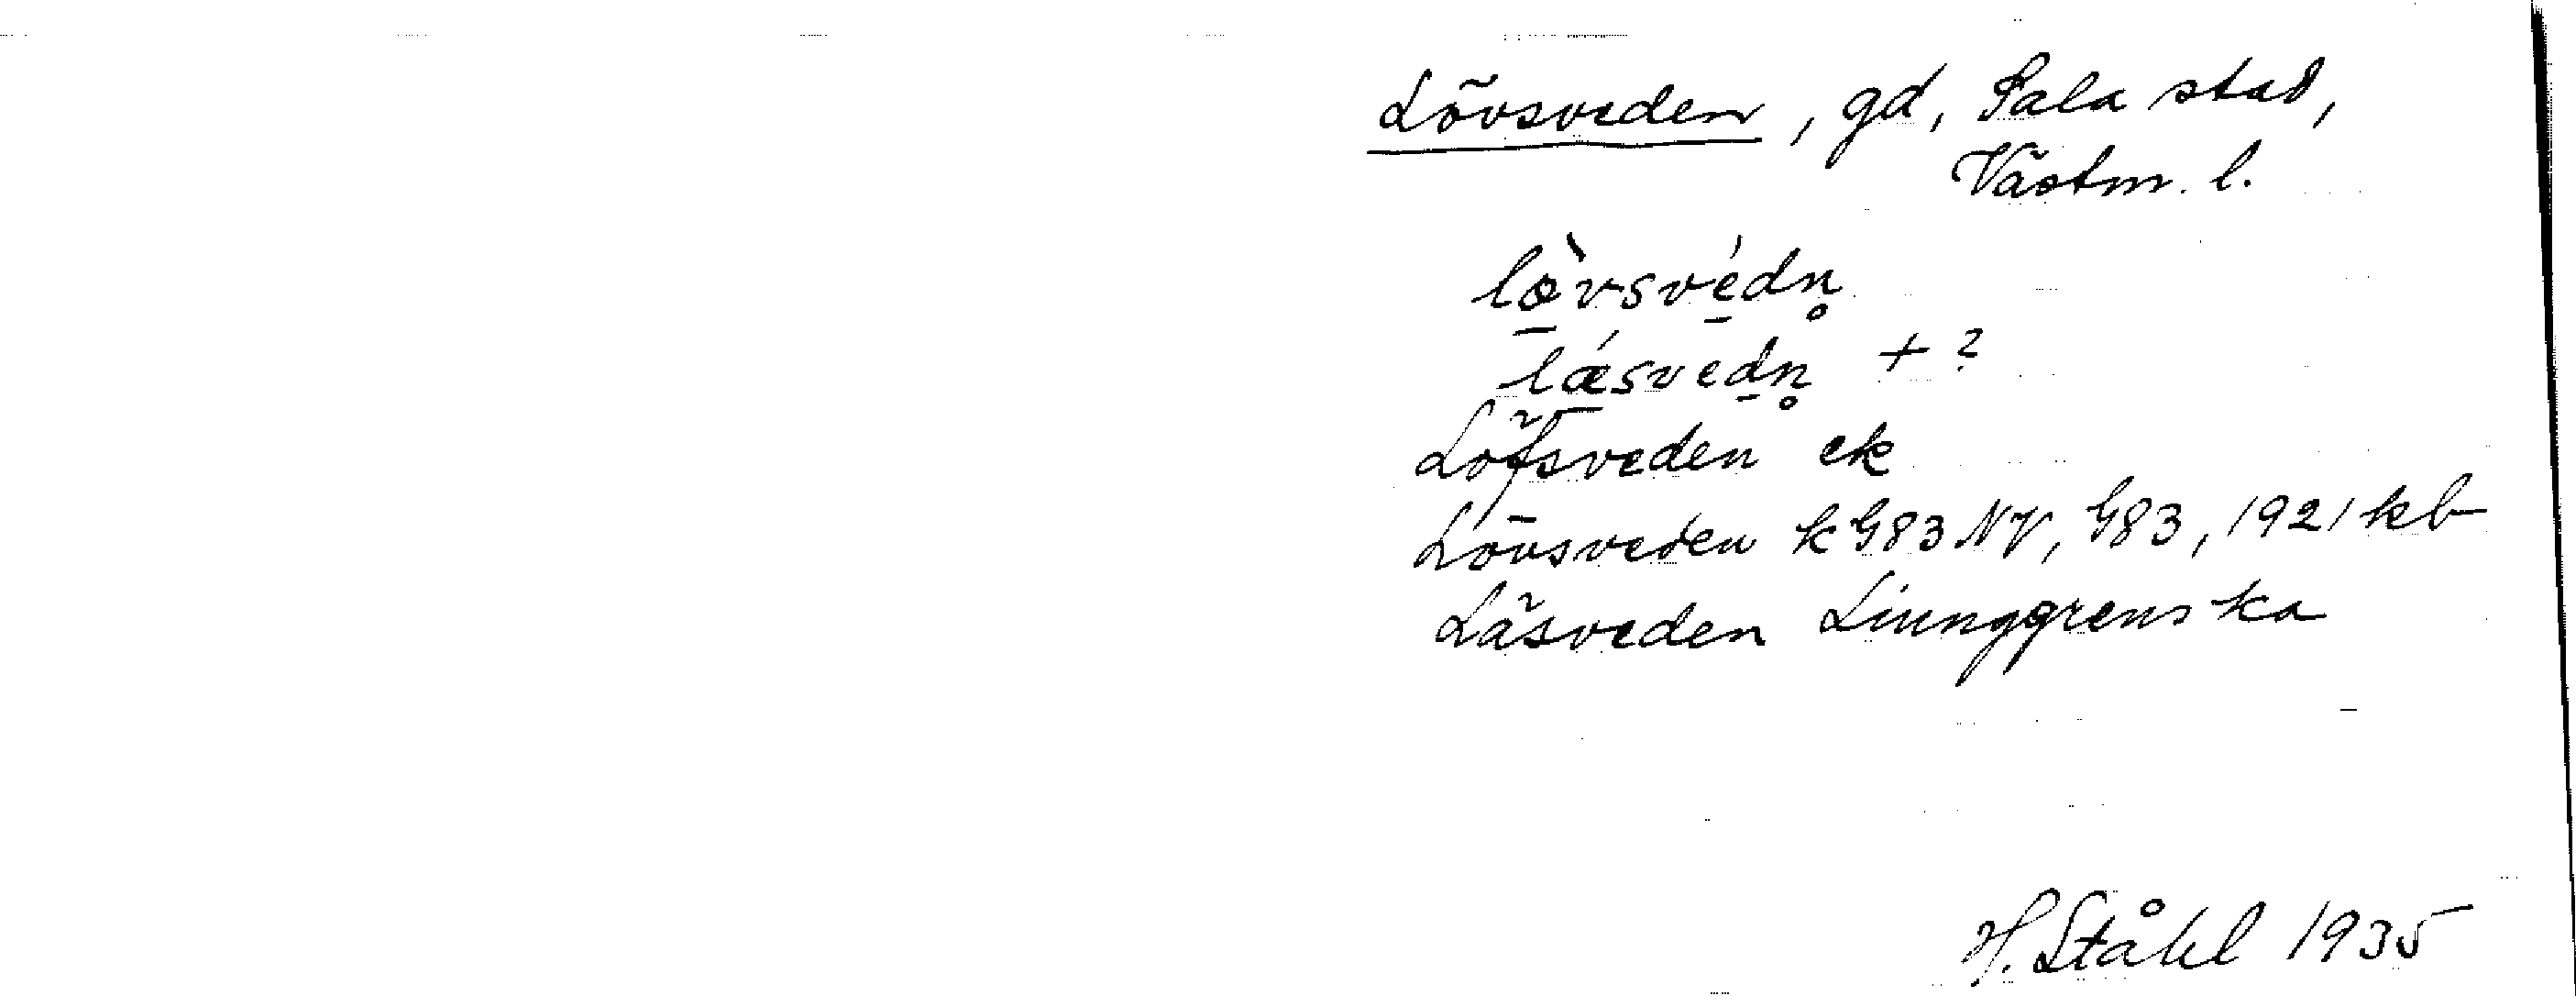 Lövsveden, gd, Sala stad,
Västm. l.
lö̀vsvédn̥
lǽsvedn̥ + ?
Löfsveden ek
Lövsveden k G83 NV, G83, 1921 kb
Läsveden Liunggrens ka
H. Ståhl 1935